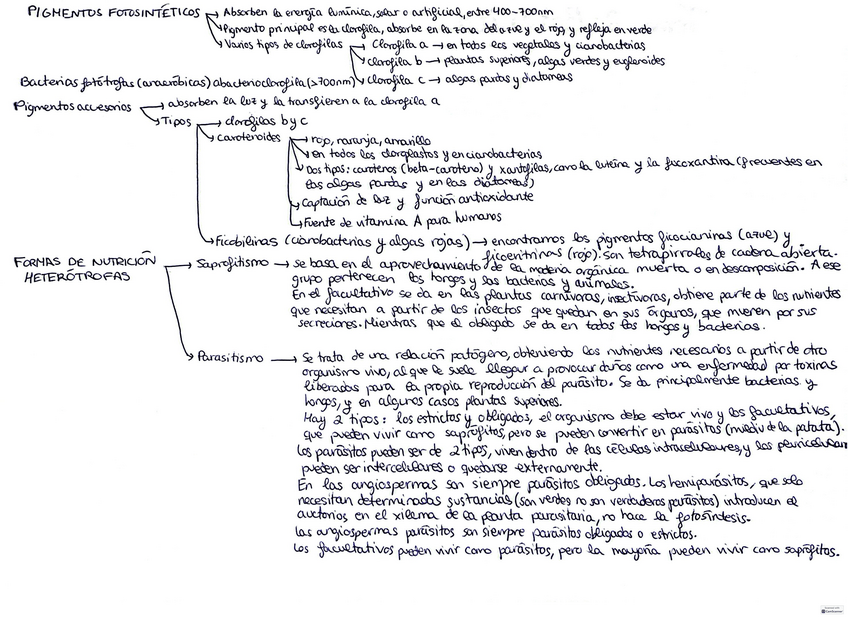 PIGMENTOS FOTOSINTÉTICOS → Absorben la energía lumínica, solar o artificial, entre 400-700nm
→ Pigmento principal es la clorofila, absorbe en la zona del azul y el rojo y refleja en verde
→ Varios tipos de clorofilas → Clorofila a → en todos los vegetales y cianobacterias
→ Clorofila b → plantas superiores, algas verdes y euglenoides
Bacterias fotótrofas (anaeróbicas) abacterioclorofila (≥700nm) → Clorofila c → algas pardas y diatomeas
Pigmentos accesorios → absorben la luz y la transfieren a la clorofila a
→ Tipos → clorofilas b y c
→ carotenoides → rojo, naranja, amarillo
→ en todos los cloroplastos y en cianobacterias
→ Dos tipos: carotenos (beta-caroteno) y xantofilas, como la luteína y la fucoxantina (frecuentes en
las algas pardas y en las diatomeas)
→ Captación de luz y función antioxidante
→ Fuente de vitamina A para humanos
→ Ficobilinas (cianobacterias y algas rojas) → encontramos los pigmentos ficocianinas (azul) y
ficoeritrinas (rojo). Son tetrapirroles de cadena abierta.
FORMAS DE NUTRICIÓN
HETERÓTROFAS → Saprofitismo → se basa en el aprovechamiento de la materia orgánica muerta o en descomposición. A ese
grupo pertenecen los hongos y las bacterias y animales.
En el facultativo se da en las plantas carnívoras, insectívoras, obtiene parte de los nutrientes
que necesitan a partir de los insectos que quedan en sus órganos, que mueren por sus
secreciones. Mientras que el obligado se da en todos los hongos y bacterias.
→ Parasitismo → Se trata de una relación patógeno, obteniendo los nutrientes necesarios a partir de otro
organismo vivo, al que le suele llegar a provocar daños como una enfermedad por toxinas
liberadas para la propia reproducción del parásito. Se da principalmente bacterias y
hongos, y en algunos casos plantas superiores.
Hay 2 tipos: los estrictos y obligados, el organismo debe estar vivo y los facultativos,
que pueden vivir como saprófitos, pero se pueden convertir en parásitos (mildiu de la patata).
Los parásitos pueden ser de 2 tipos, viven dentro de las células intracelulares, y los pluricelulares
pueden ser intercelulares o quedarse externamente.
En las angiospermas son siempre parásitos obligados. Los hemiparásitos, que solo
necesitan determinadas sustancias (son verdes no son verdaderos parásitos) introducen el
austorios en el xilema de la planta parasitaria, no hace la fotosíntesis.
Las angiospermas parásitos son siempre parásitos obligados o estrictos.
Los facultativos pueden vivir como parásitos, pero la mayoría pueden vivir como saprófitos.
CamScanner